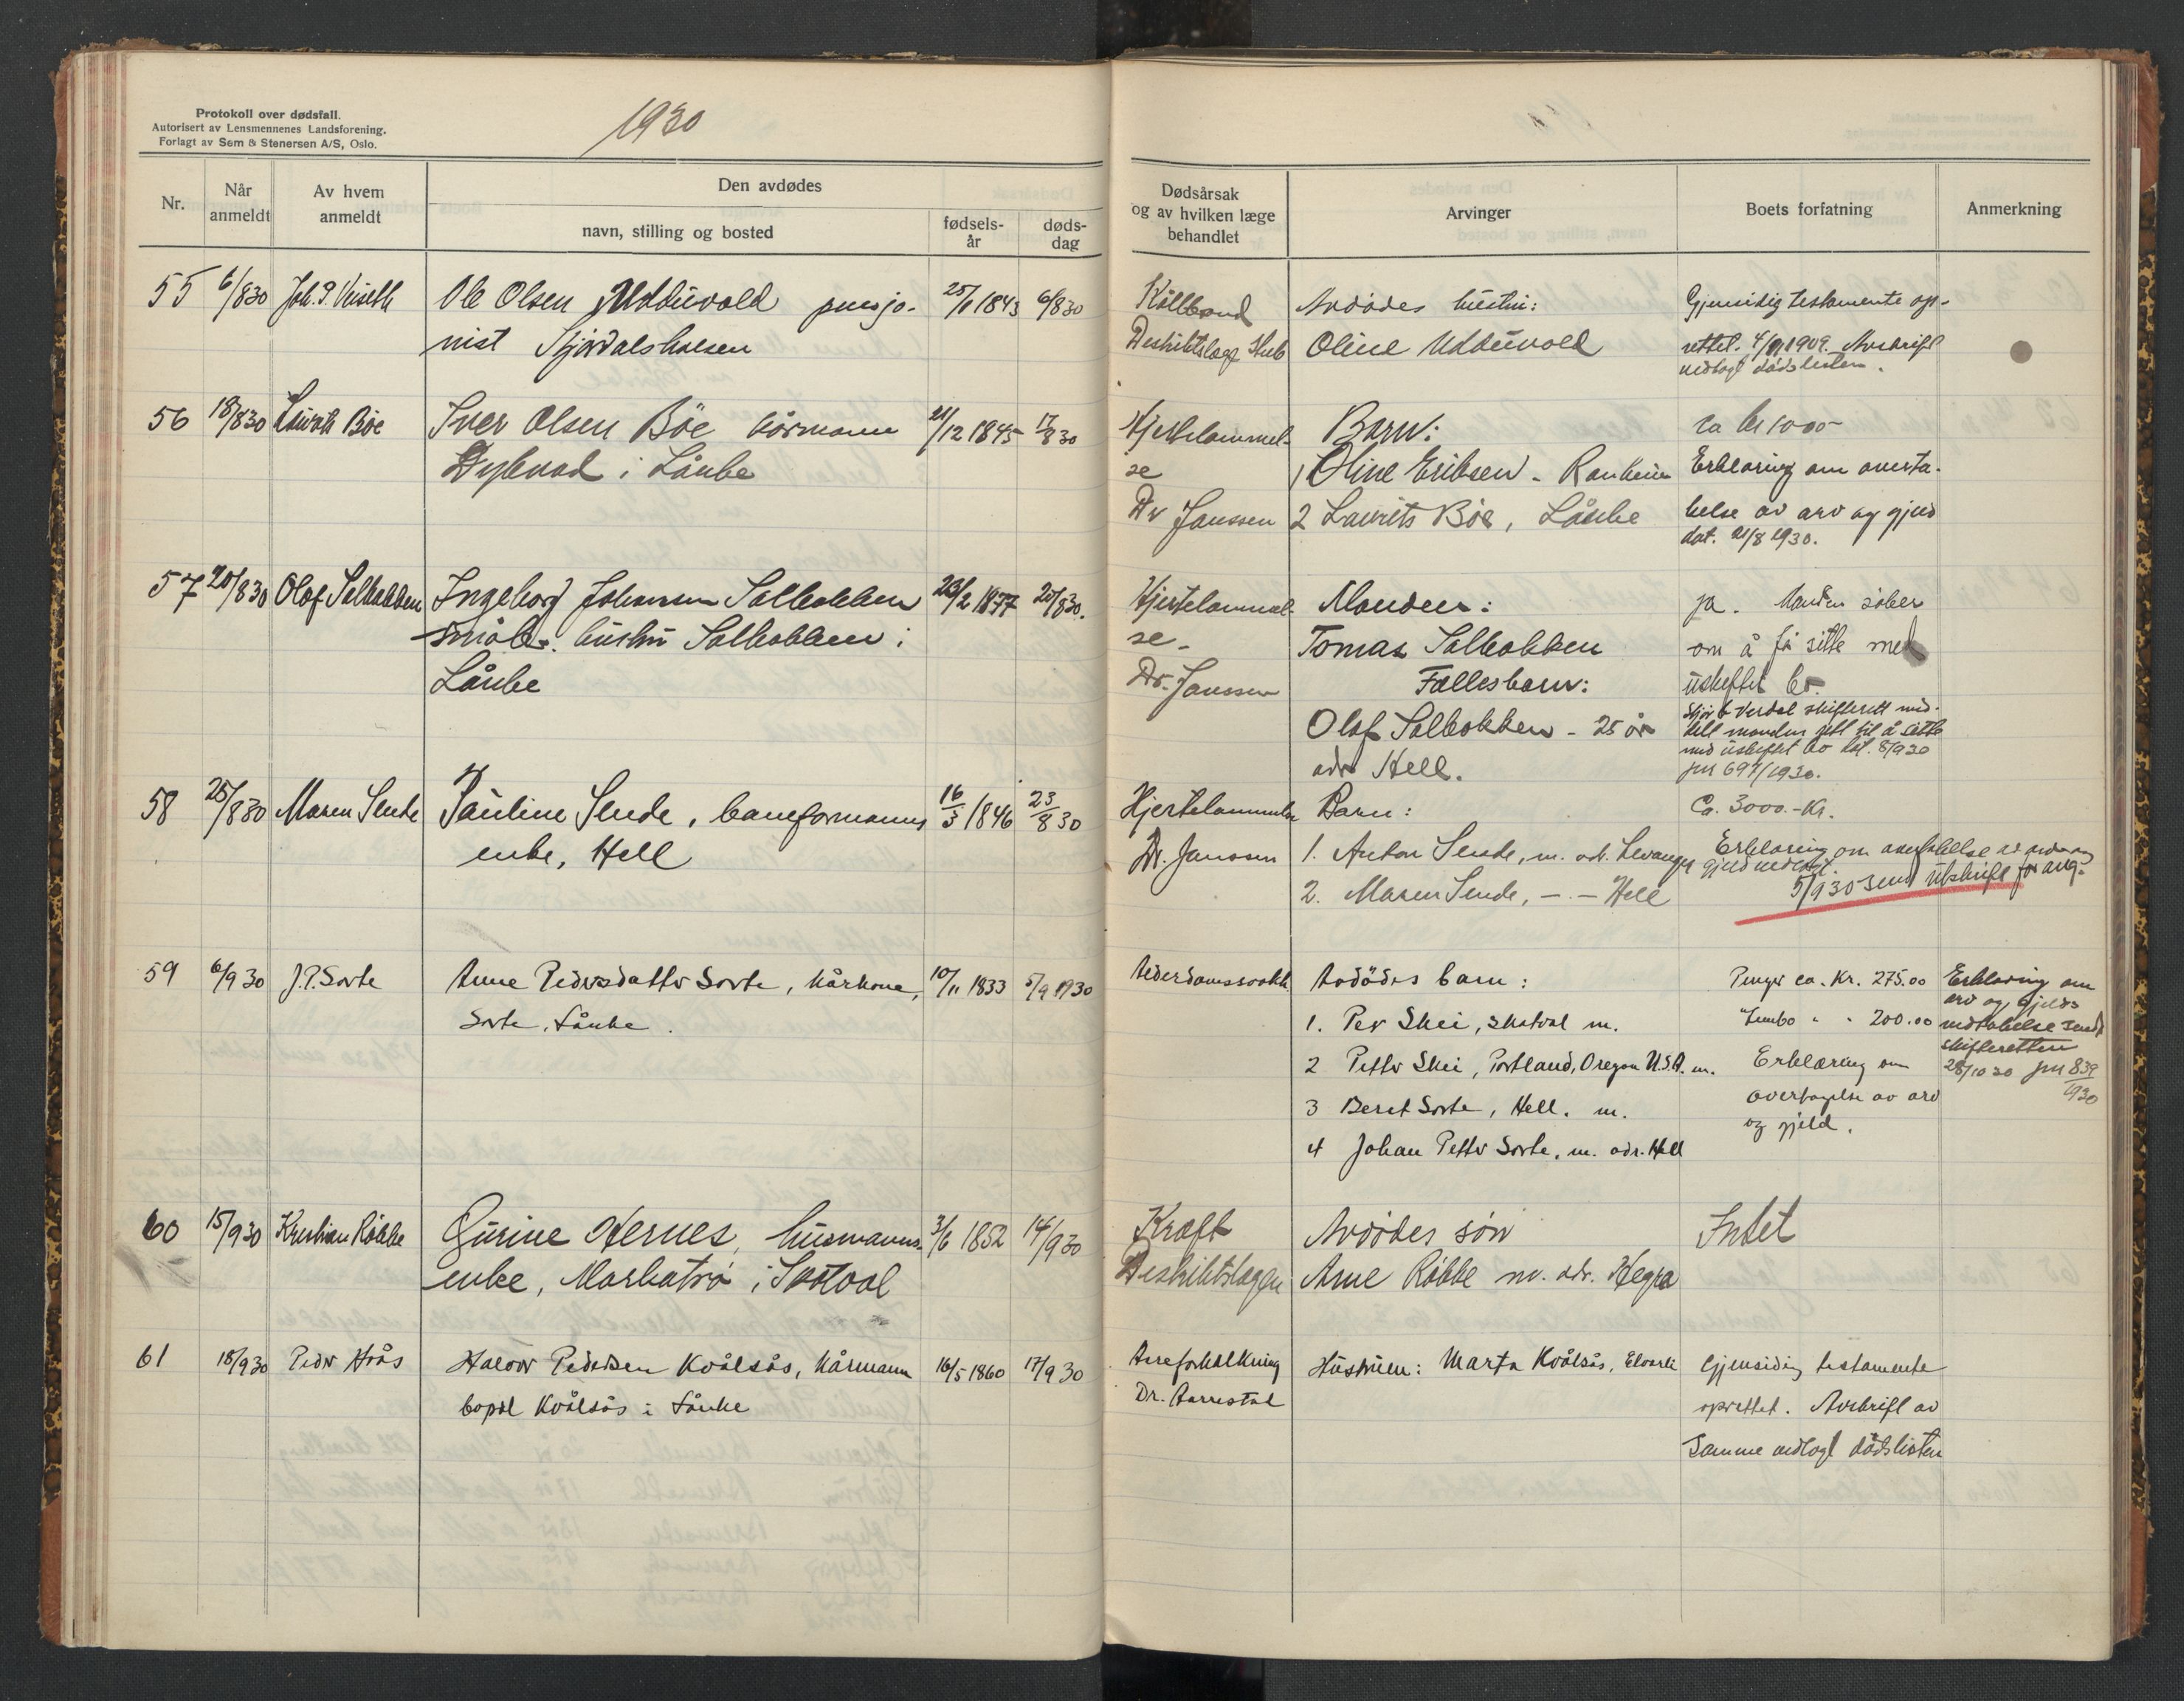 Protokoll over dødsfall.
Autorisert av Lensmennenes Landsforening.
Forlagt av Sem & Stenersen A/S, Oslo.
1930
Nr.
Når anmeldt
Av hvem anmeldt
Den avdødes
navn, stilling og bosted
fødsels-år
døds-dag
Dødsårsak og av hvilken læge behandlet
Arvinger
Boets forfatning
Anmerkning
55 6/830 Joh. P. Ole Olsen Udduvold pensjo- 25/1 1843 6/830 Kolbrand Avdødes hustru: Gjensidig testamente op-
nist Stjørdalshalsen Distriktslæge Oline Udduvold rettet. 1909. Avskrift
vedlagt dødslisten.
56 18/830 Bõe Iver Olsen Bõe kårmann 21/12 1845 17/8 30 Hjertelammel- Barn: ca kr 1000-
Dybvad i Lånke se 1 Oline Eriksen - Ranheim Erklæring om overta-
Dr Janssen 2 Laurits Bõe, Lånke kelse av arv og gjeld
dat. 21/8 1930.
57 20/830 Olaf Solbakken Ingeborg Johansen Solbakken 23/2 1877 20/830. Hjertelammel- Manden: ja. Manden søker
småbr. hustru Solbakken i se. Tomas Solbakken om å få sitte med
Lånke Dr. Janssen Fællesbarn: uskiftet bo.
Olaf Solbakken - 25 år Stjør & Verdal skifterett med-
delt manden rett til å sitte
adr Hell. med uskiftet bo dat. 8/930
jnr 697/1930.
58 25/830 Maren Sende Pauline Sende, baneformanns 16/3 1846 23/8 30 Hjertelammelse Barn: Ca. 3000.-Kr.
enke, Hell Dr. Janssen 1. Anton Sende, m. adr. Levanger Erklæring om overtakelse av arv og
gjeld vedlagt.
2. Maren Sende, -.- Hell 5/930 send utskrift for arvg.
59 6/9 30 J.P. Sorte Anne Pedersdatter Sorte, kårkone, 10/11 1833 5/9 1930 Alderdomssvakh. Avdødes barn: Penger ca. Kr. 275.00 Erklæring om
Sorte, Lånke. arv og gjelds
1. Per Skei, Skatval m. Innbo " " 200.00 vedtakelse sendt
skifteretten
2 Petter Skei, Portland, Oregon U.S.A. m. Erklæring om 28/10 30 jnr 839/1930
3 Beret Sorte, Hell. m. overtagelse av arv
4 Johan Petter Sorte, m. adr. Hell og gjeld.
60 15/930 Kristian Røkke Gurine Hernes, husmanns- 3/6 1852 14/9 30 Kræft Avdødes søn Intet
enke, i Skatval Distriktslægen Arne Røkke m. adr. Hegra
61 18/930 Peder Hrås Halvor Pedersen Kvålsås, kårmann 16/5 1860 17/9 30 Åreforkalkning Hustruen: Marta Kvålsås, Elvarli Gjensidig testamente
bopæl Kvålsås i Lånke Dr. Aarrestad oprettet. Avskrift av
samme vedlagt dødslisten